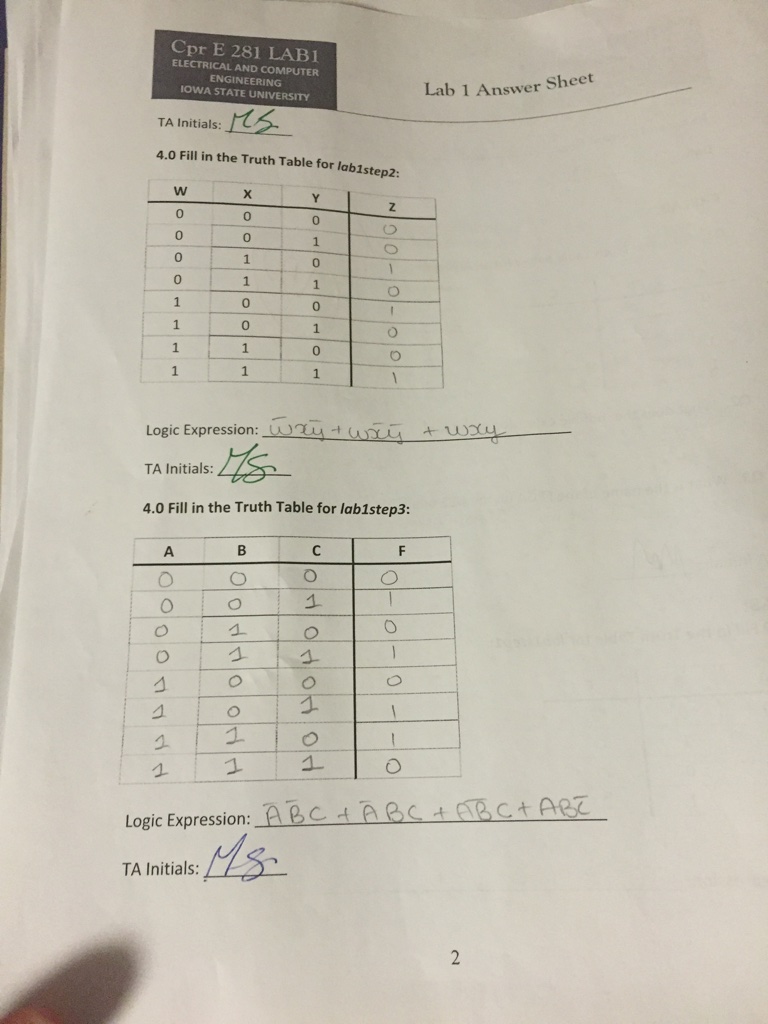 Cpr E 281 LAB1
ELECTRICAL AND COMPUTER
ENGINEERING
IOWA STATE UNIVERSITY
Lab 1 Answer Sheet
TA Initials: MS
4.0 Fill in the Truth Table for lab1step2:
W X Y Z
0 0 0 0
0 0 1 0
0 1 0 1
0 1 1 0
1 0 0 1
1 0 1 0
1 1 0 0
1 1 1 1
Logic Expression: w̅xy̅ + wx̅y̅ + wxy
TA Initials: MS
4.0 Fill in the Truth Table for lab1step3:
A B C F
0 0 0 0
0 0 1 1
0 1 0 0
0 1 1 1
1 0 0 0
1 0 1 1
1 1 0 1
1 1 1 0
Logic Expression: A̅B̅C + A̅BC + AB̅C + ABC̅
TA Initials: MS
2